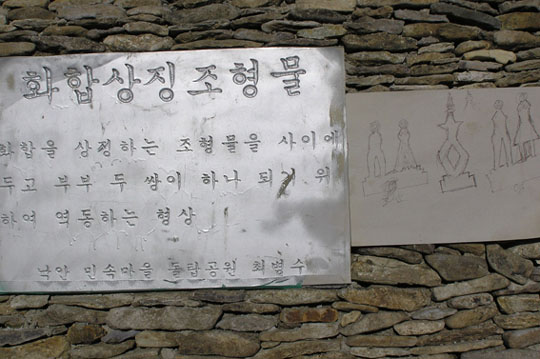 화합상징조형물
화합을 상징하는 조형물을 사이에
두고 부부 두 쌍이 하나 되기 위
하여 역동하는 형상
낙안 민속마을 돌탑공원 최병수